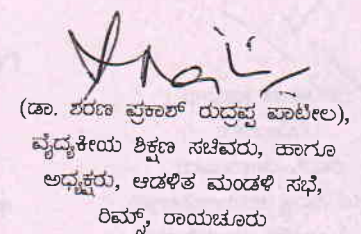 (ಡಾ. ಶರಣ ಪ್ರಕಾಶ್ ರುದ್ರಪ್ಪ ಪಾಟೀಲ),
ವೈದ್ಯಕೀಯ ಶಿಕ್ಷಣ ಸಚಿವರು, ಹಾಗೂ
ಅಧ್ಯಕ್ಷರು, ಆಡಳಿತ ಮಂಡಳಿ ಸಭೆ,
ರಿಮ್ಸ್, ರಾಯಚೂರು